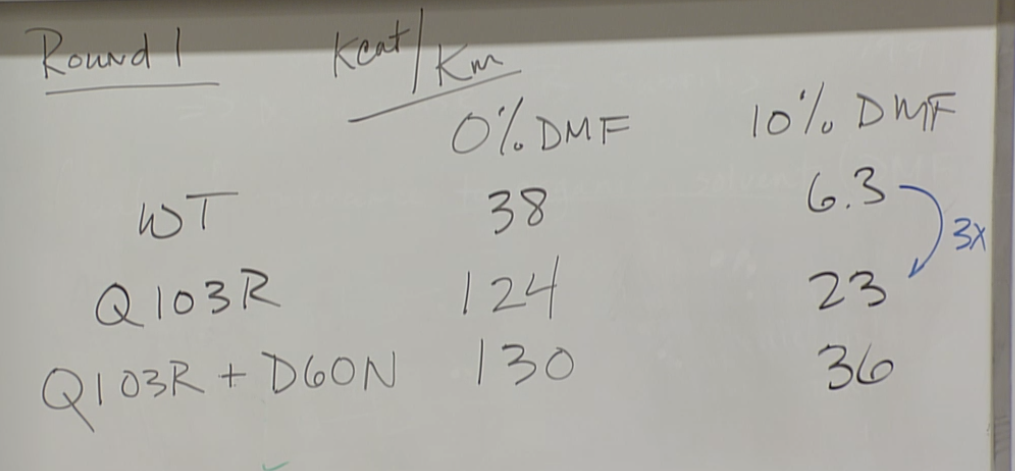 Round 1 Kcat/Km
0% DMF 10% DMF
WT 38 6.3
3x
Q103R 124 23
Q103R + D60N 130 36